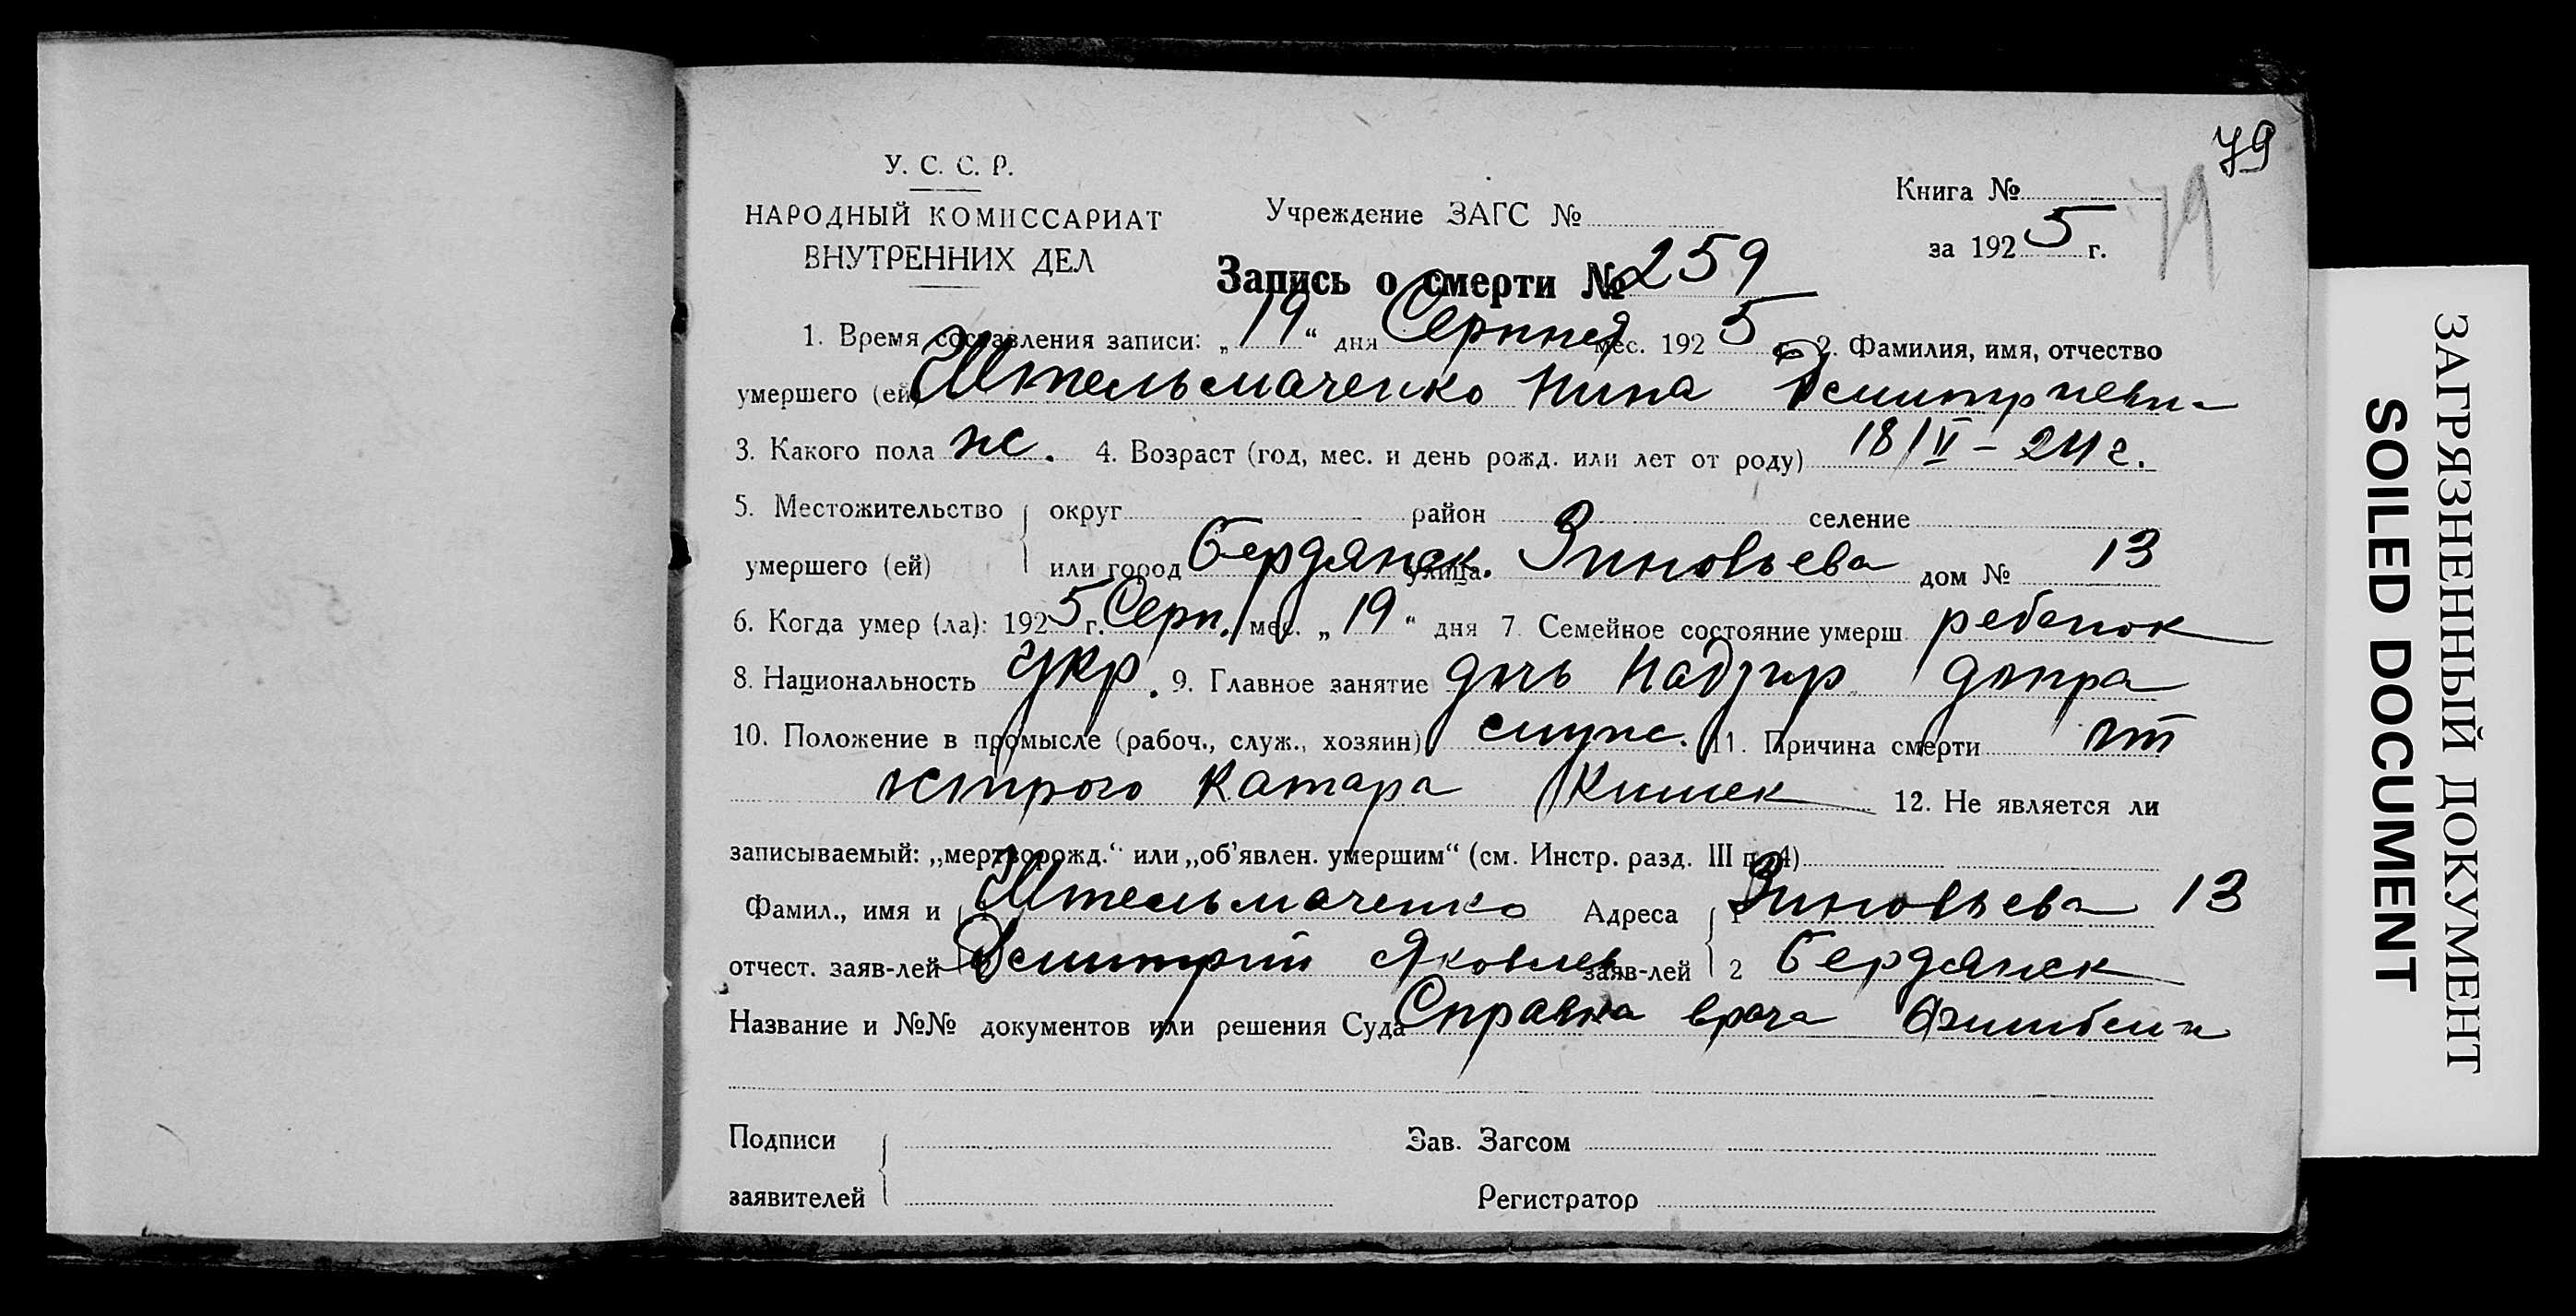 79
79
У. С. С. Р.
НАРОДНЫЙ КОМИССАРИАТ
ВНУТРЕННИХ ДЕЛ
Учреждение ЗАГС №
Книга №
за 1925 г.
Запись о смерти № 259
1. Время составления записи: „19“ дня Серпня мес. 1925 г. 2. Фамилия, имя, отчество
умершего (ей) Штельмаченко Нина Дмитриевн
3. Какого пола ж. 4. Возраст (год, мес. и день рожд. или лет от роду) 18/VI – 24 г.
5. Местожительство округ район селение
умершего (ей) или город Бердянск. улица Зиновьева дом № 13
6. Когда умер (ла): 1925 г. Серп. мес. „19“ дня 7. Семейное состояние умерш. ребенок
8. Национальность укр. 9. Главное занятие дочь Надзир допра
10. Положение в промысле (рабоч., служ., хозяин) служ. 11. Причина смерти от
острого катара кишек 12. Не является ли
записываемый: „мертворожд.“ или „об’явлен. умершим“ (см. Инстр. разд. III п. 4)
Фамил., имя и 1 Штельмаченко Адреса 1 Зиновьева 13
отчест. заяв-лей Дмитрий Яковлев заяв-лей 2 Бердянск
Название и №№ документов или решения Суда Справка врача
Подписи
заявителей
Зав. Загсом
Регистратор
ЗАГРЯЗНЕННЫЙ ДОКУМЕНТ
SOILED DOCUMENT